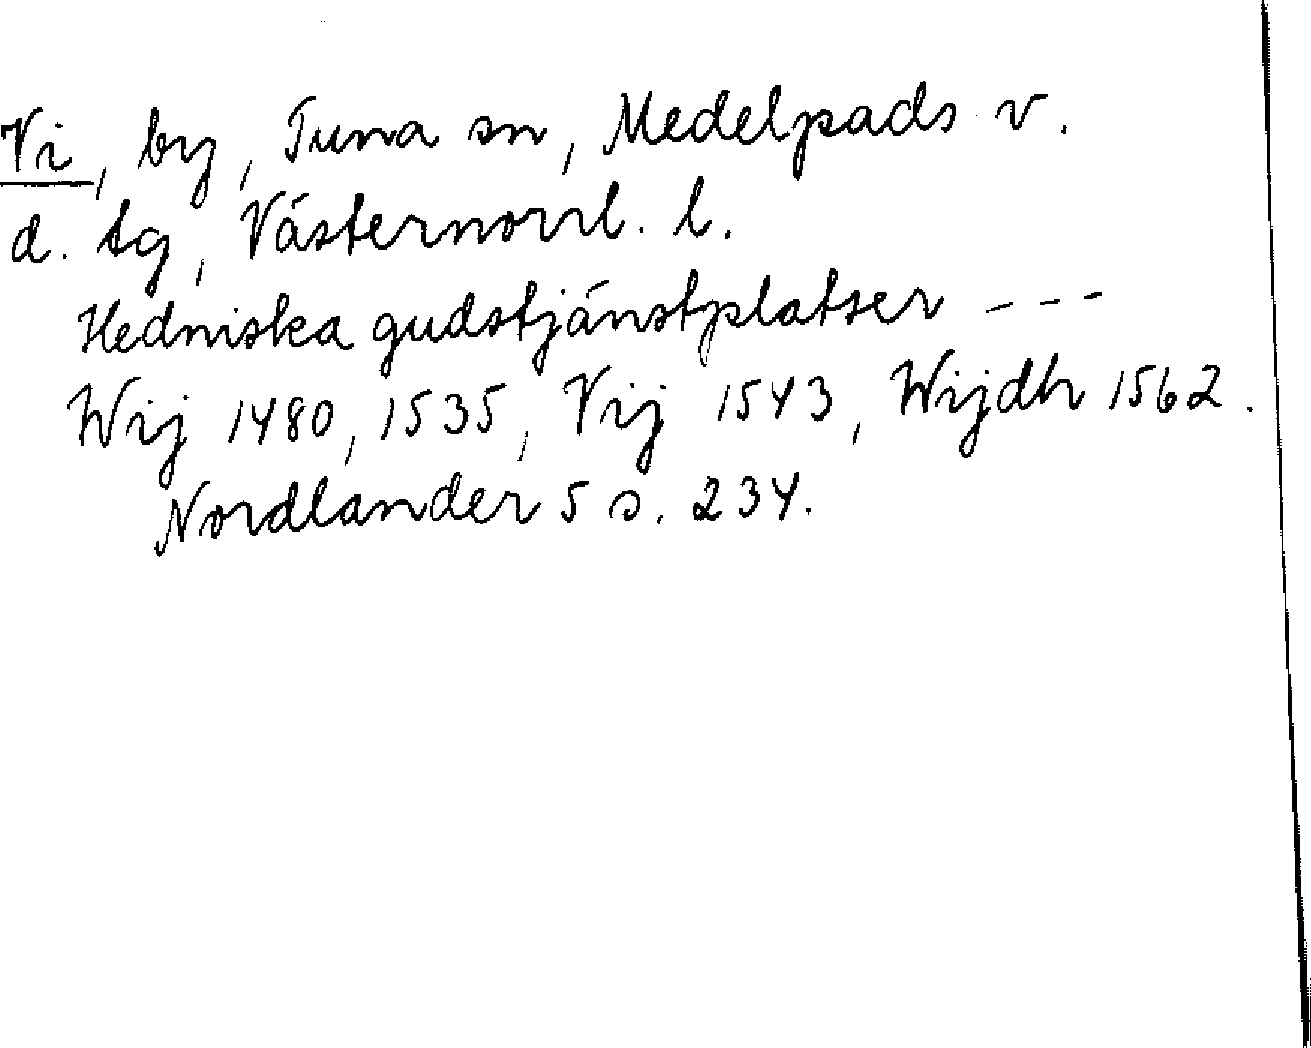 Vi, by, Tuna sn, Medelpads v.
d. tg, Västernorrl. l.
Hedniska gudstjänstplatser ---
Wij 1480, 1535, Vij 1543, Wijdh 1562.
Nordlander 5 s. 234.